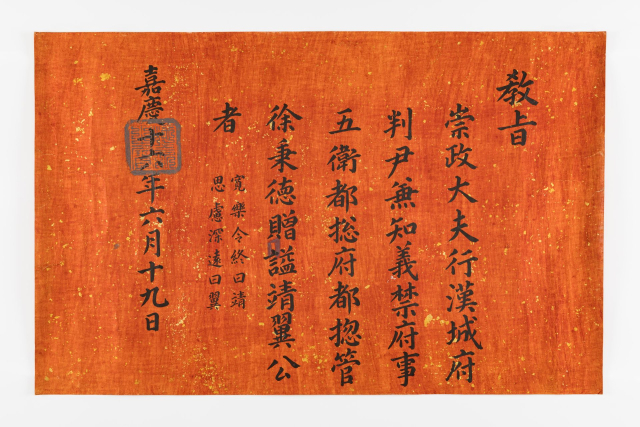 教旨
崇政大夫行漢城府
判尹兼知義禁府事
五衛都捴府都捴管
徐秉德贈諡靖翼公
者
寬樂令終曰靖
思慮深遠曰翼
嘉慶十六年六月十九日